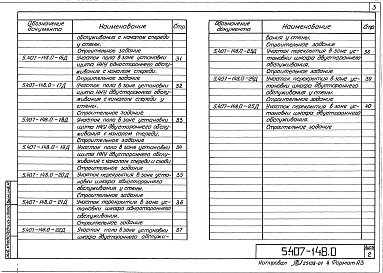 3
Обозначение документа
Наименование
Стр.
обслуживания с каналом спереди
у стены.
Строительное задание
5.407-148.0-16Д
Участок пола в зоне установки
31
щита НКУ одностороннего обслу-
живания с каналом спереди.
Строительное задание
5.407-148.0-17Д
Участок пола в зоне установки
32
щита НКУ двустороннего обслу-
живания с каналом спереди у
стены.
Строительное задание
5.407-148.0-18Д
Участок пола в зоне установки
33
щита НКУ двустороннего обслу-
живания с каналом спереди.
Строительное задание
5.407-148.0-19Д
Участок пола в зоне установки
34
щита НКУ двустороннего обслу-
живания с каналом спереди и сзади
Строительное задание
5.407-148.0-20Д
Участок перекрытия в зоне уста-
35
новки шкафа одностороннего
обслуживания у стены
Строительное задание
5.407-148.0-21Д
Участок перекрытия в зоне ус-
36
тановки шкафа одностороннего
обслуживания.
Строительное задание
5.407-148.0-22Д
Участок перекрытия в зоне установки
37
шкафа двустороннего обслужи-
Обозначение документа
Наименование
Стр.
вания у стены.
Строительное задание
5.407-148.0-23Д
Участок перекрытия в зоне ус-
38
тановки шкафа двустороннего
обслуживания.
Строительное задание
5.407-148.0-24Д
Участок перекрытия в зоне ус-
39
тановки шкафа двустороннего
обслуживания у стены
Строительное задание
5.407-148.0-25Д
Участок перекрытия в зоне ус-
40
тановки шкафа двустороннего
обслуживания.
Строительное задание
5.407-148.0
Лист
2
Копировал
25108-01 4 Формат А3